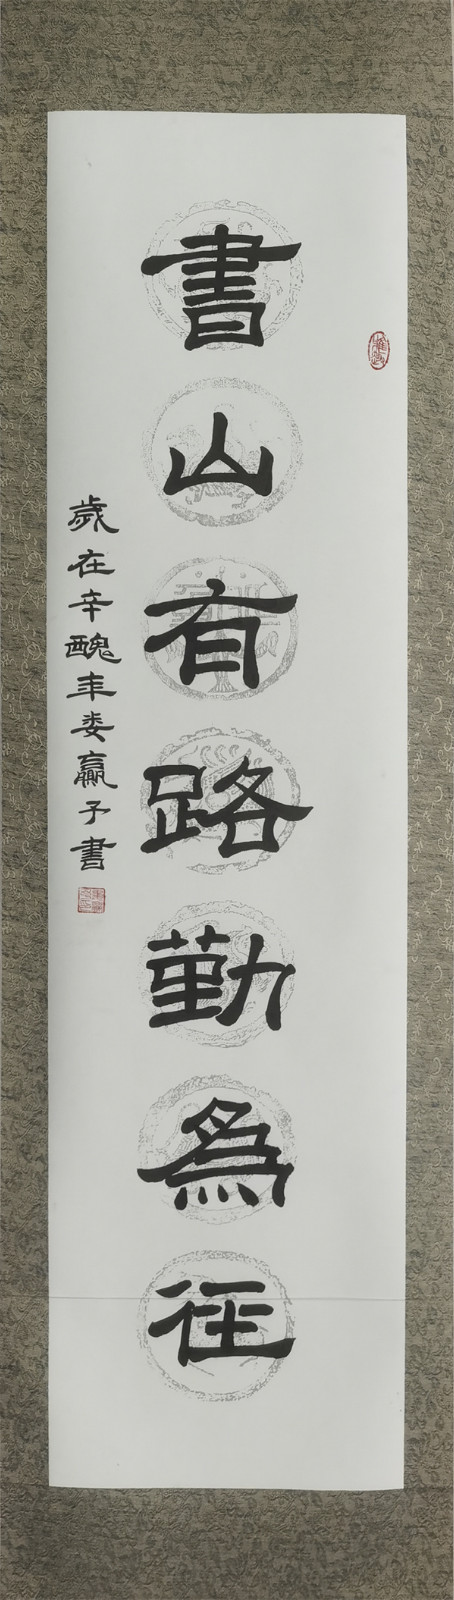 書山有路勤為径
歲在辛醜年娄嬴子書